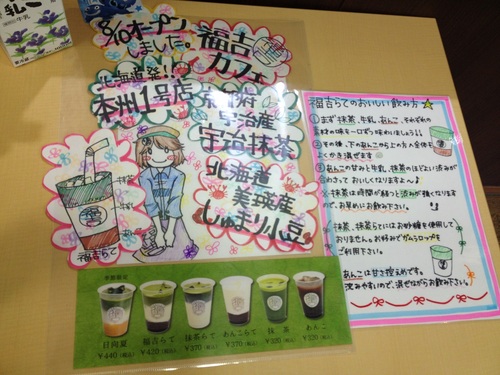 8/10オープン
しました。
福吉
カフェ
北海道発!
本州1号店
京都府
宇治産
宇治抹茶
北海道
美瑛産
しゅまり小豆
抹茶
牛乳
あんこ
福吉らて
福吉らてのおいしい飲み方☆
①まず抹茶、牛乳、あんこ、それぞれの
素材の味を一口ずつ味わいましょう♪♪
②その後、下のあんこから上の方へ全体を
よくかき混ぜます。
③あんこの甘みと牛乳、抹茶のほどよい渋みが
合わさっておいしくなりますよ~♪
※抹茶は時間が経つと渋みが強くなります
ので、お早めにお飲み下さい。
※抹茶、抹茶らてにはお砂糖を使用して
おりません。お好みでガムシロップをご
ご利用下さい。
あんこは甘さ控えめです。
沈みやすいので、混ぜながらお飲み下さい!
季節限定
日向夏
¥440(税込)
福吉らて
¥420(税込)
抹茶らて
¥370(税込)
あんこらて
¥370(税込)
抹茶
¥320(税込)
あんこ
¥320(税込)